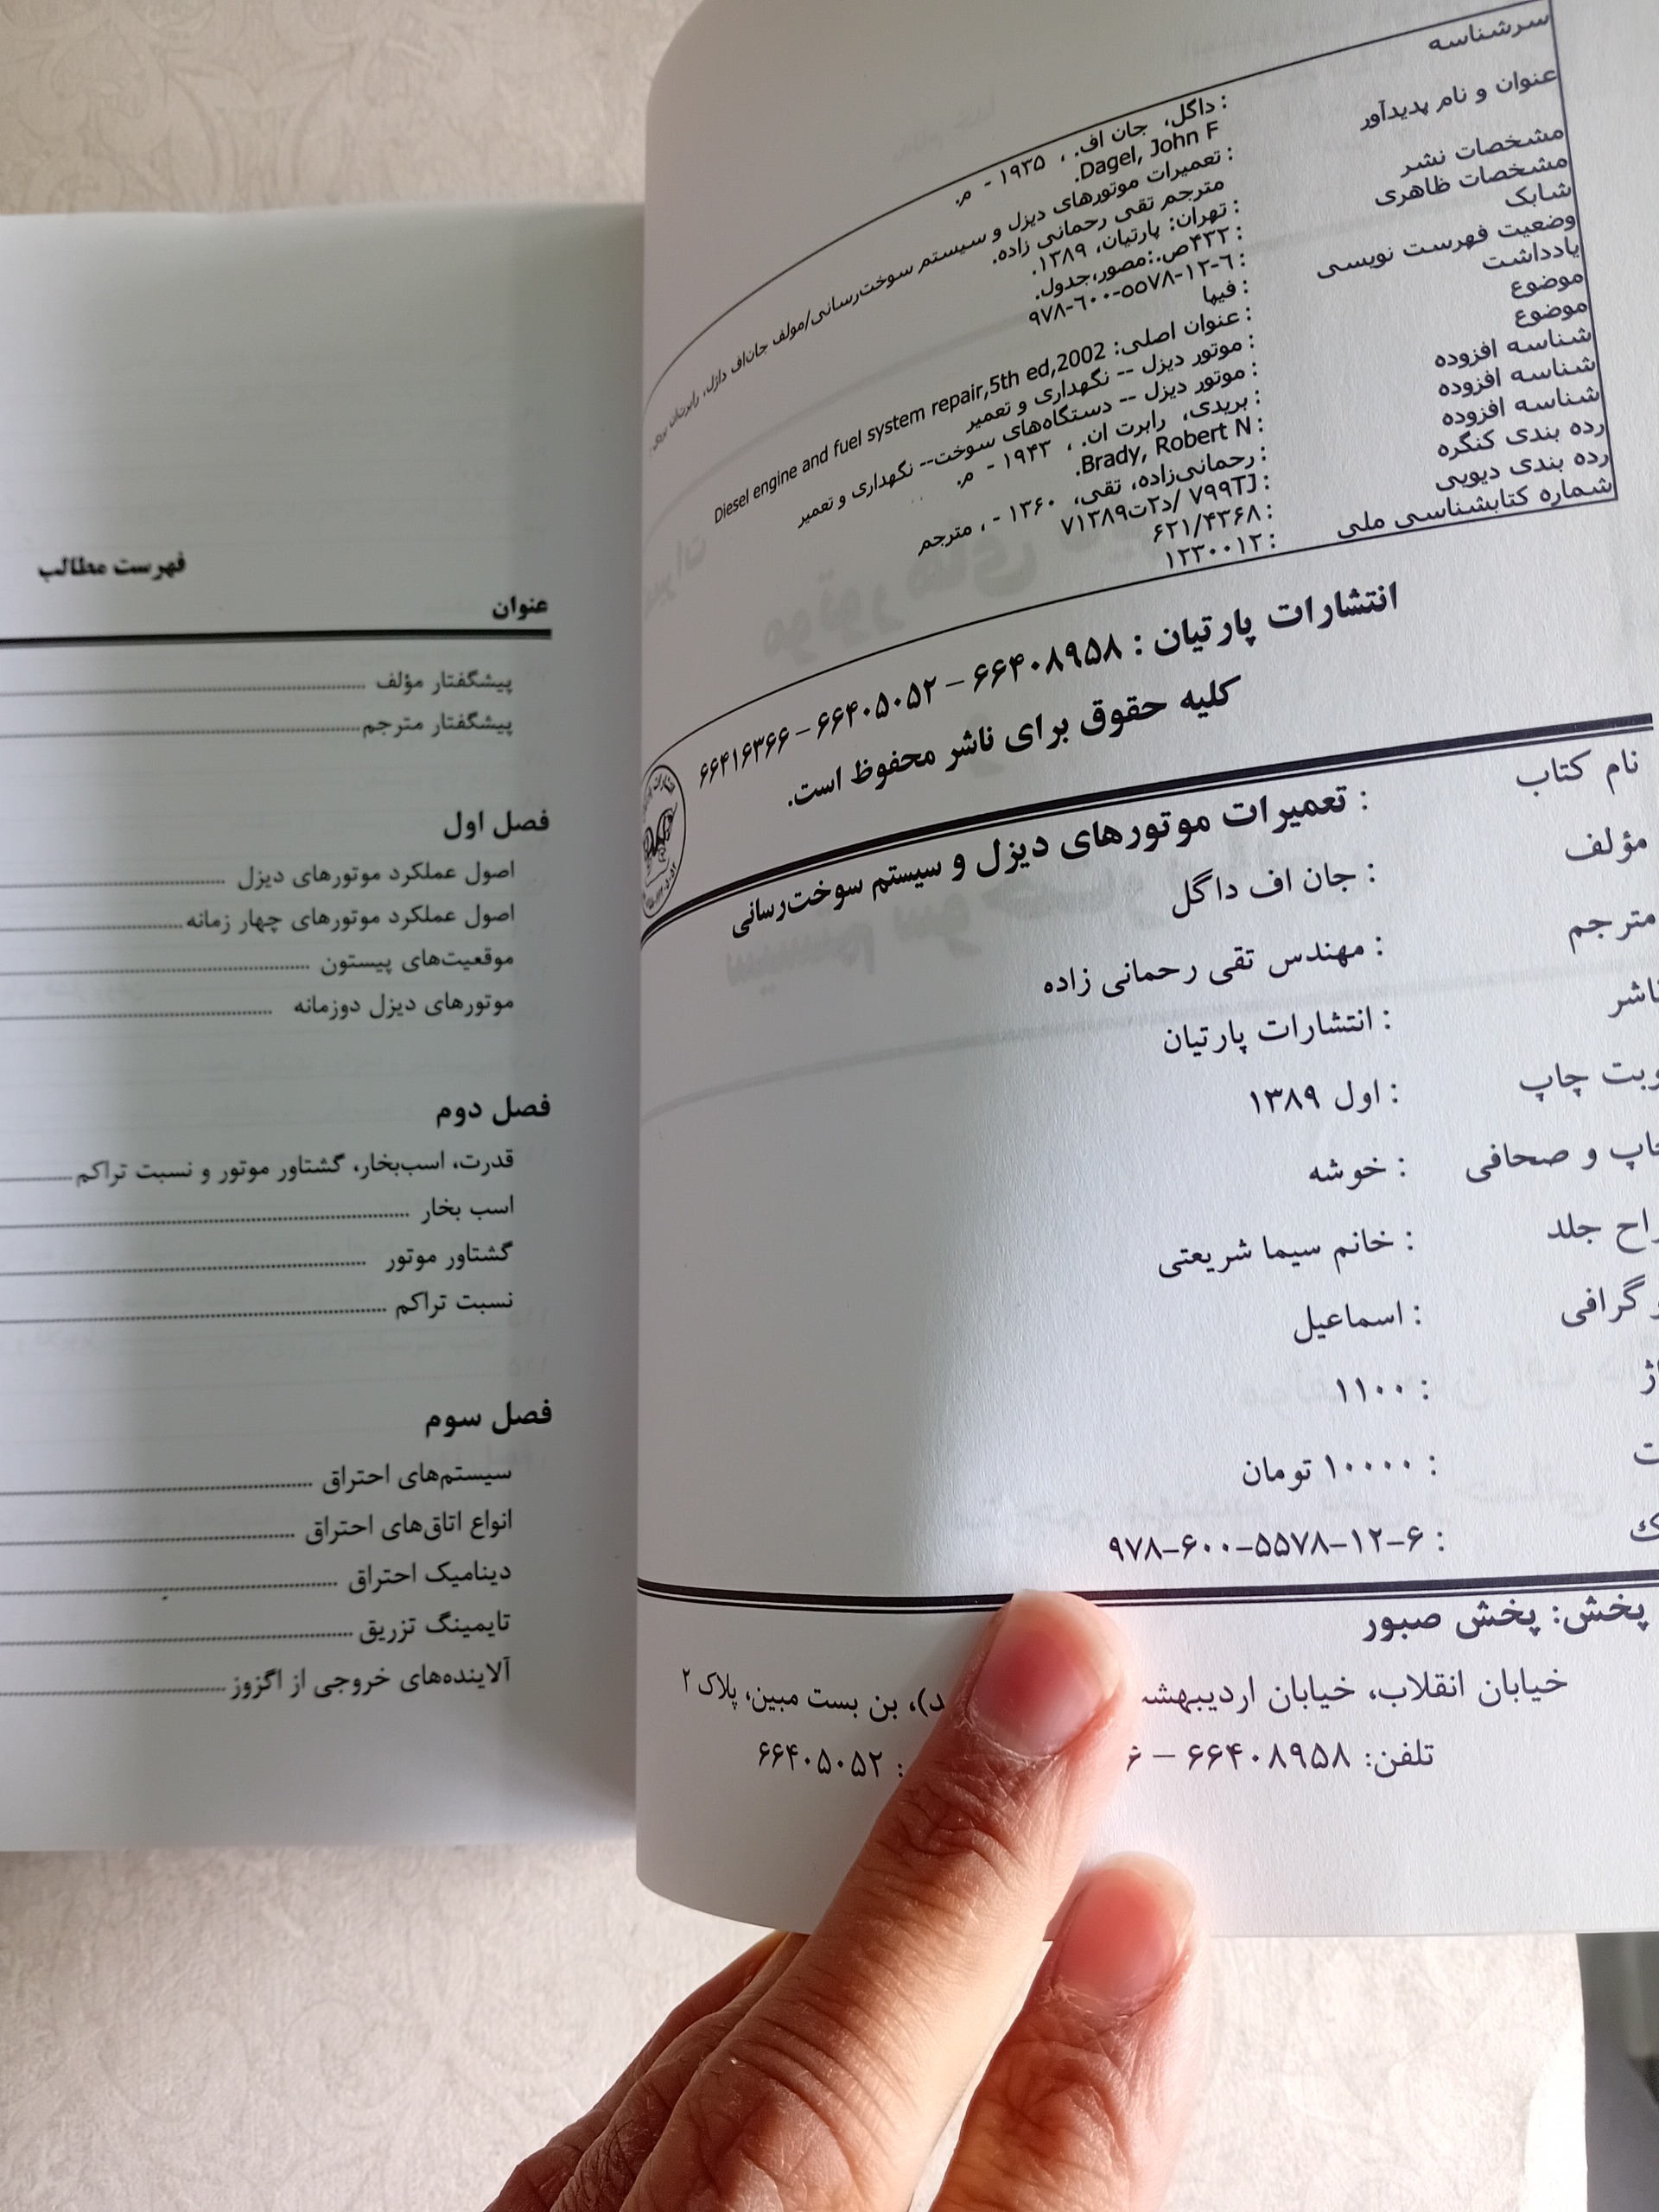 سرشناسه : داگل، جان اف. ، ۱۹۳۵ - م.
Dagel, John F.
عنوان و نام پدیدآور : تعمیرات موتورهای دیزل و سیستم سوخت‌رسانی/مولف جان‌اف داگل،
مترجم تقی رحمانی زاده.
مشخصات نشر : تهران: پارتیان، ۱۳۸۹.
مشخصات ظاهری : ۴۳۲ص.:مصور،جدول.
شابک : ۹۷۸-۶۰۰-۵۵۷۸-۱۲-۶
وضعیت فهرست نویسی : فیپا
یادداشت : عنوان اصلی: Diesel engine and fuel system repair,5th ed,2002
موضوع : موتور دیزل -- نگهداری و تعمیر
موضوع : موتور دیزل -- دستگاه‌های سوخت-- نگهداری و تعمیر
شناسه افزوده : بریدی، رابرت ان. ، ۱۹۴۳ - م.
شناسه افزوده : Brady, Robert N.
شناسه افزوده : رحمانی‌زاده، تقی، ۱۳۶۰ - ، مترجم
رده بندی کنگره : ۷۹۹TJ /د۲ت۷۱۳۸۹
رده بندی دیویی : ۶۲۱/۴۳۶۸
شماره کتابشناسی ملی : ۱۲۳۰۰۱۲
انتشارات پارتیان : ۶۶۴۰۸۹۵۸ – ۶۶۴۰۵۰۵۲ – ۶۶۴۱۶۳۶۶
کلیه حقوق برای ناشر محفوظ است.
نام کتاب : تعمیرات موتورهای دیزل و سیستم سوخت‌رسانی
مؤلف : جان اف داگل
مترجم : مهندس تقی رحمانی زاده
ناشر : انتشارات پارتیان
وبت چاپ : اول ۱۳۸۹
چاپ و صحافی : خوشه
راح جلد : خانم سیما شریعتی
گرافی : اسماعیل
اژ : ۱۱۰۰
ت : ۱۰۰۰۰ تومان
ک : ۹۷۸-۶۰۰-۵۵۷۸-۱۲-۶
پخش: پخش صبور
خیابان انقلاب، خیابان اردیبهشت د)، بن بست مبین، پلاک ۲
تلفن: ۶۶۴۰۸۹۵۸ – ۶ : ۶۶۴۰۵۰۵۲
فهرست مطالب
عنوان
پیشگفتار مؤلف
پیشگفتار مترجم
فصل اول
اصول عملکرد موتورهای دیزل
اصول عملکرد موتورهای چهار زمانه
موقعیت‌های پیستون
موتورهای دیزل دوزمانه
فصل دوم
قدرت، اسب‌بخار، گشتاور موتور و نسبت تراکم
اسب بخار
گشتاور موتور
نسبت تراکم
فصل سوم
سیستم‌های احتراق
انواع اتاق‌های احتراق
دینامیک احتراق
تایمینگ تزریق
آلاینده‌های خروجی از اگزوز